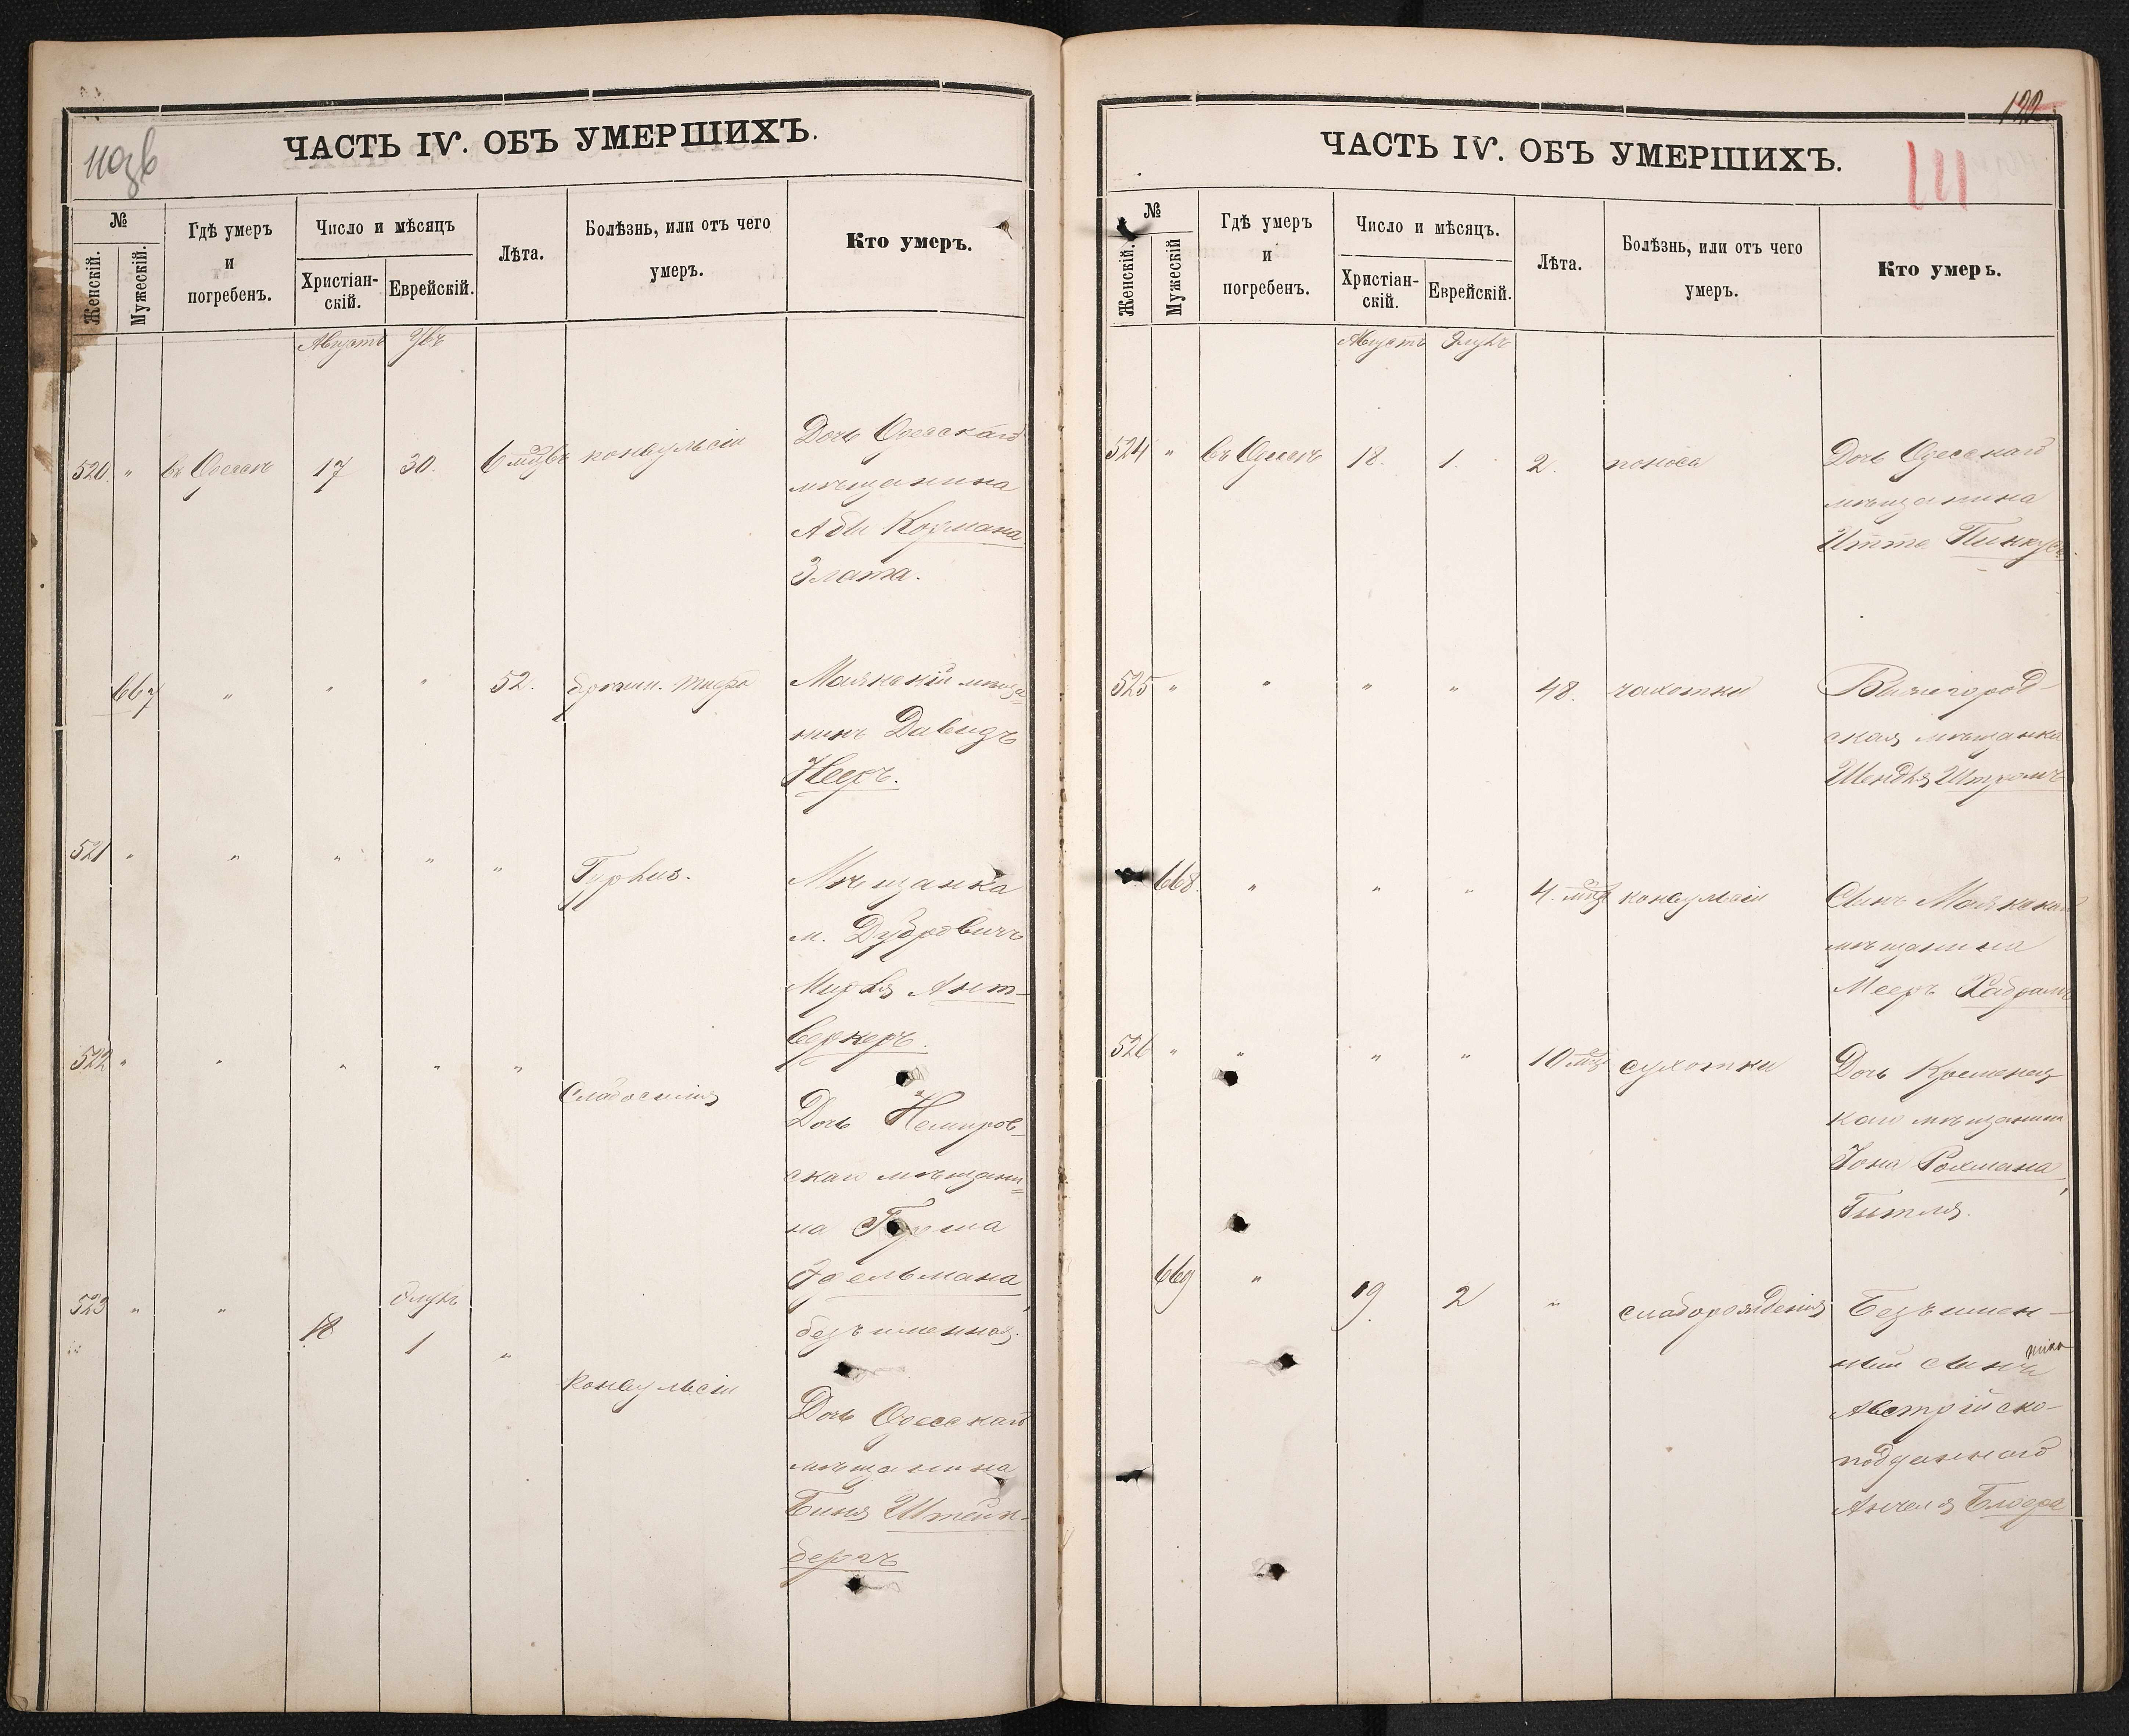 110 об
ЧАСТЬ IV. ОБЪ УМЕРШИХЪ.
№
Женскій.
Мужескій.
Гдѣ умеръ
и
погребенъ.
Число и мѣсяцъ
Христіан-
скій.
Еврейскій.
Лѣта.
Болѣзнь, или отъ чего
умеръ.
Кто умеръ.
Августъ
520. " въ Одессѣ 17 30. 6 мцвъ конвульсіи Дочь Одесскаго
мѣщанина
Аби
Злата.
667 " " " 52. брюшн. тифа Маякскій мѣща=
нинъ Давидъ
521 " " " " "
Мѣщанка
м. Дубровичъ
Мирля Ант-
522 " " " " "
Слабосилія
Дочь Немиров-
скаго мѣщани=
на
Эдельмана,
безъименная.
523 " " 18 Элулъ 1 "
Конвульсіи
Дочь Одесскаго
мѣщанина
Биня Штейн-
бергъ
122.
111
ЧАСТЬ IV. ОБЪ УМЕРШИХЪ.
№
Женскій.
Мужескій
Гдѣ умеръ
и
погребенъ.
Число и мѣсяцъ.
Христіан-
скій.
Еврейскій.
Лѣта.
Болѣзнь, или отъ чего
умеръ.
Кто умеръ.
Августъ Элулъ
524 " въ Одессѣ 18. 1. 2. поноса Дочь Одесскаго
мѣщанина
Итта Пинкусъ.
525 " " " " 48. чахотки
ская мѣщанка
Шендля
668. " " " 4. мцв конвульсіи Сынъ Маякскаго
мѣщанина
Мееръ
526 " " " " 10 мцв сухотки Дочь Кременец
каго мѣщанина
Іона Рохмана,
Гитля.
669 " 19. 2 " слаборожденія Безъимен-
ный сынъ
Австрійско-
подданнаго